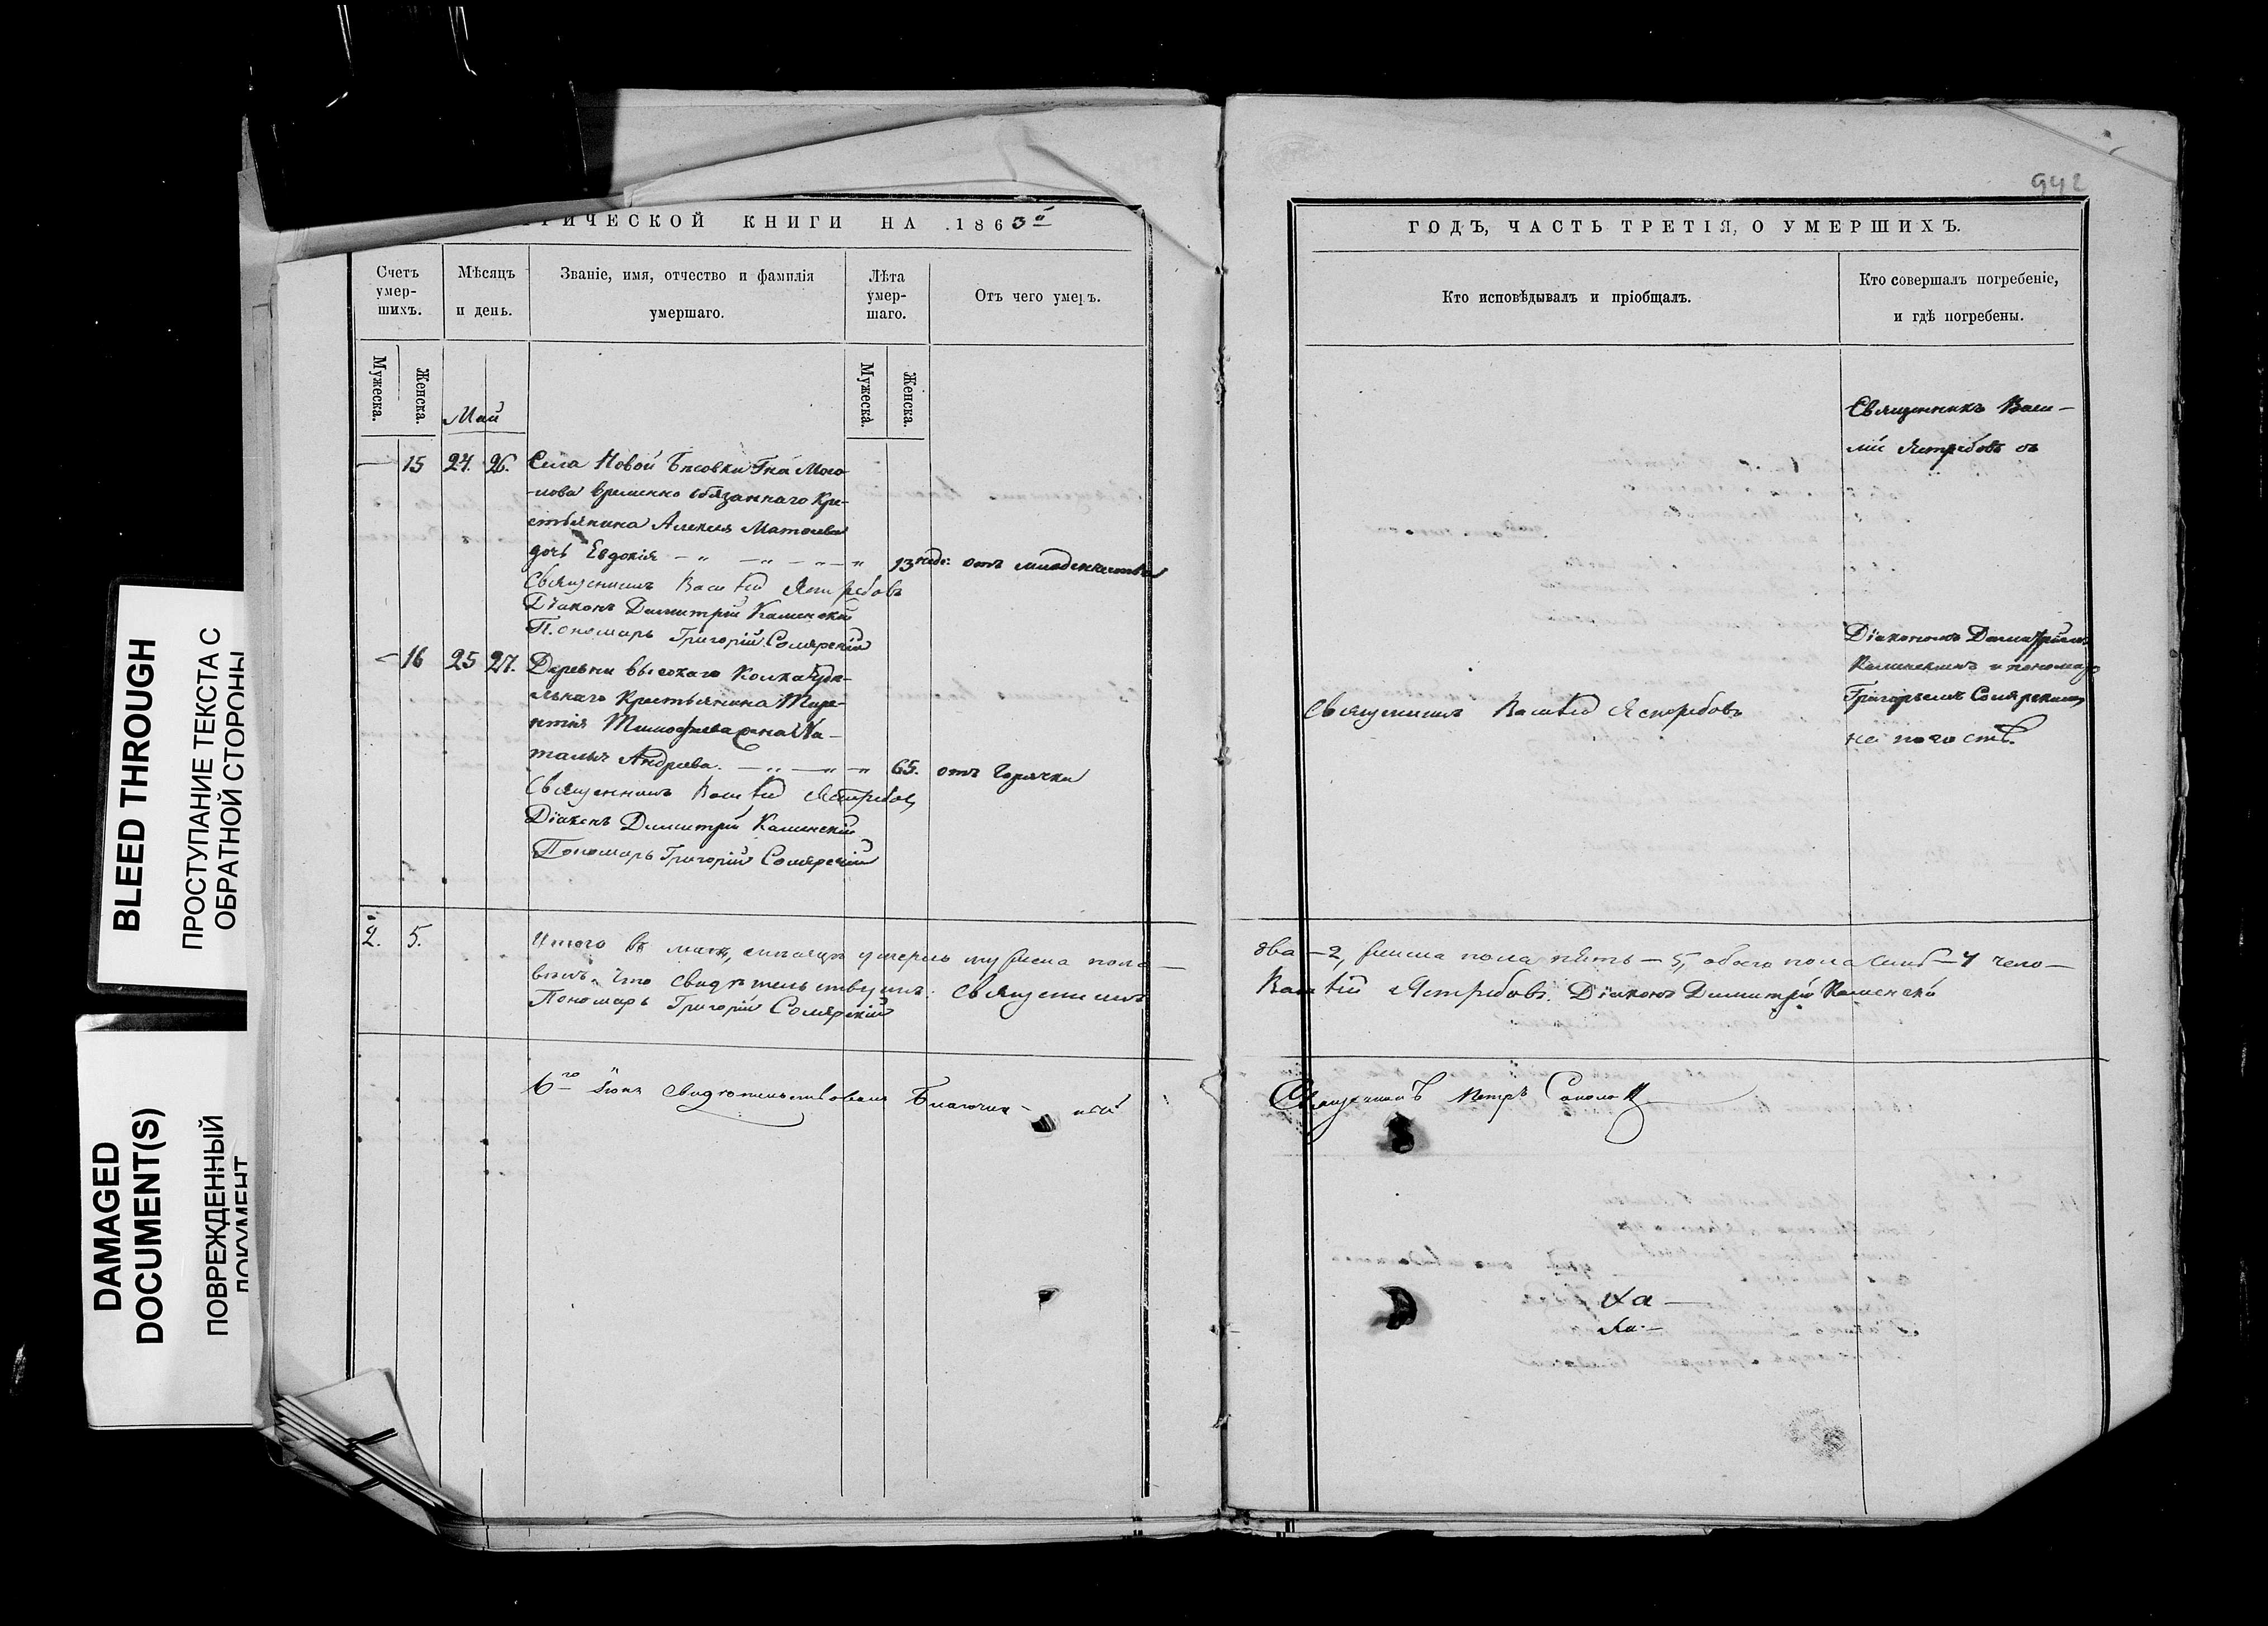 942
РИЧЕСКОЙ КНИГИ НА 1863й
ГОДЪ, ЧАСТЬ ТРЕТІЯ, О УМЕРШИХЪ.
Счетъ умер-шихъ.
Мѣсяцъ и день.
Званіе, имя, отчество и фамилія умершаго.
Лѣта умер-шаго.
Отъ чего умеръ.
Кто исповѣдывалъ и пріобщалъ.
Кто совершалъ погребеніе, и гдѣ погребены.
Мужеска.
Женска.
Мужеска.
Женска.
Май
15 24. 26. Села Новой Гна Мосо-
-лова временно обязаннаго Кре-
стьянина Алексѣя Матвѣева
дочь Евдокія 13 нед: отъ младенчества
Священникъ Василій Ястребовъ
Діаконъ Димитрій Каменскій
Пономарь Григорій Солярскій
Священникъ Васи-
лій Ястребовъ съ
Діакономъ Димитріемъ
Каменскимъ и пономар
Григорьемъ Солярскимъ
на погостѣ.
16 25 27. Деревни Высокаго
Крестьянина Тере-
нтія Тимофеева жена На-
талья Андреева. 65. отъ горячки
Священникъ Василій Ястребовъ
Діаконъ Димитрій Каменскій
Пономарь Григорій Солярскій
Священникъ Василій Ястребовъ
2. 5. Итого въ маѣ мѣсяцѣ умерло мужеска пола два – 2, женска пола пять – 5, обоего пола семь – 7 чело-
вѣкъ. Что свидѣтельствуемъ: Священникъ Василій Ястребовъ. Діаконъ Димитрій Каменскій
Пономарь Григорій Солярскій
6го Іюня свидѣтельствовалъ Благочинный Священникъ Петръ Соколовъ
BLEED THROUGH
ПРОСТУПАНИЕ ТЕКСТА С
ОБРАТНОЙ СТОРОНЫ
DAMAGED
DOCUMENT(S)
ПОВРЕЖДЕННЫЙ
ДОКУМЕНТ